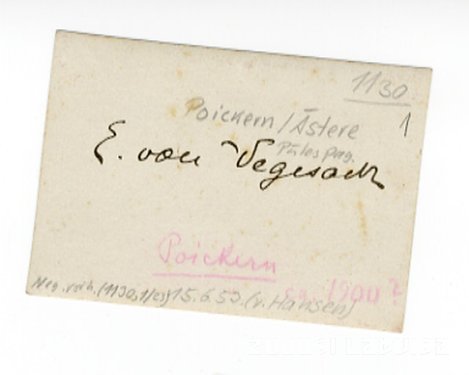 1130
1
Poickern/Āstere
Pāles pag.
E. von Vegesack
Poickern
Ca. 1900?
Neg. vorh. (1130, 1/es) 15.6.53 (v. Hansen)